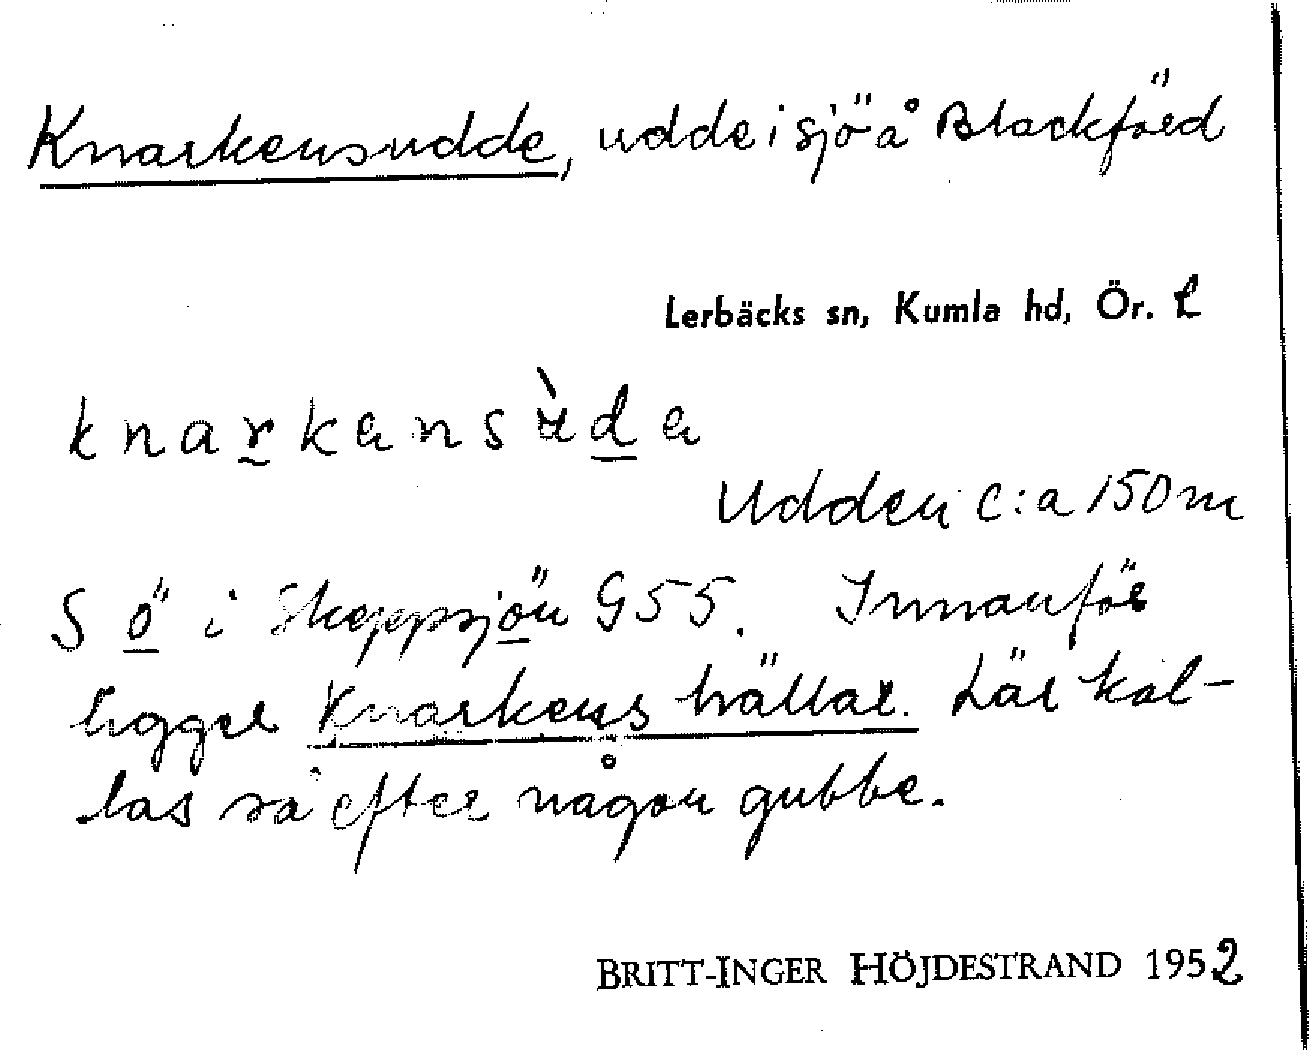 Knarkensudde, udde i sjö å Blackföed
Lerbäcks sn, Kumla hd, Ör. L
knarkensùde
Udden c:a 150 m
S ö i Skeppsjön G55. Innanför
ligger Knarkens hällar. Lär kal-
las så efter någon gubbe.
BRITT-INGER HÖJDESTRAND 1952